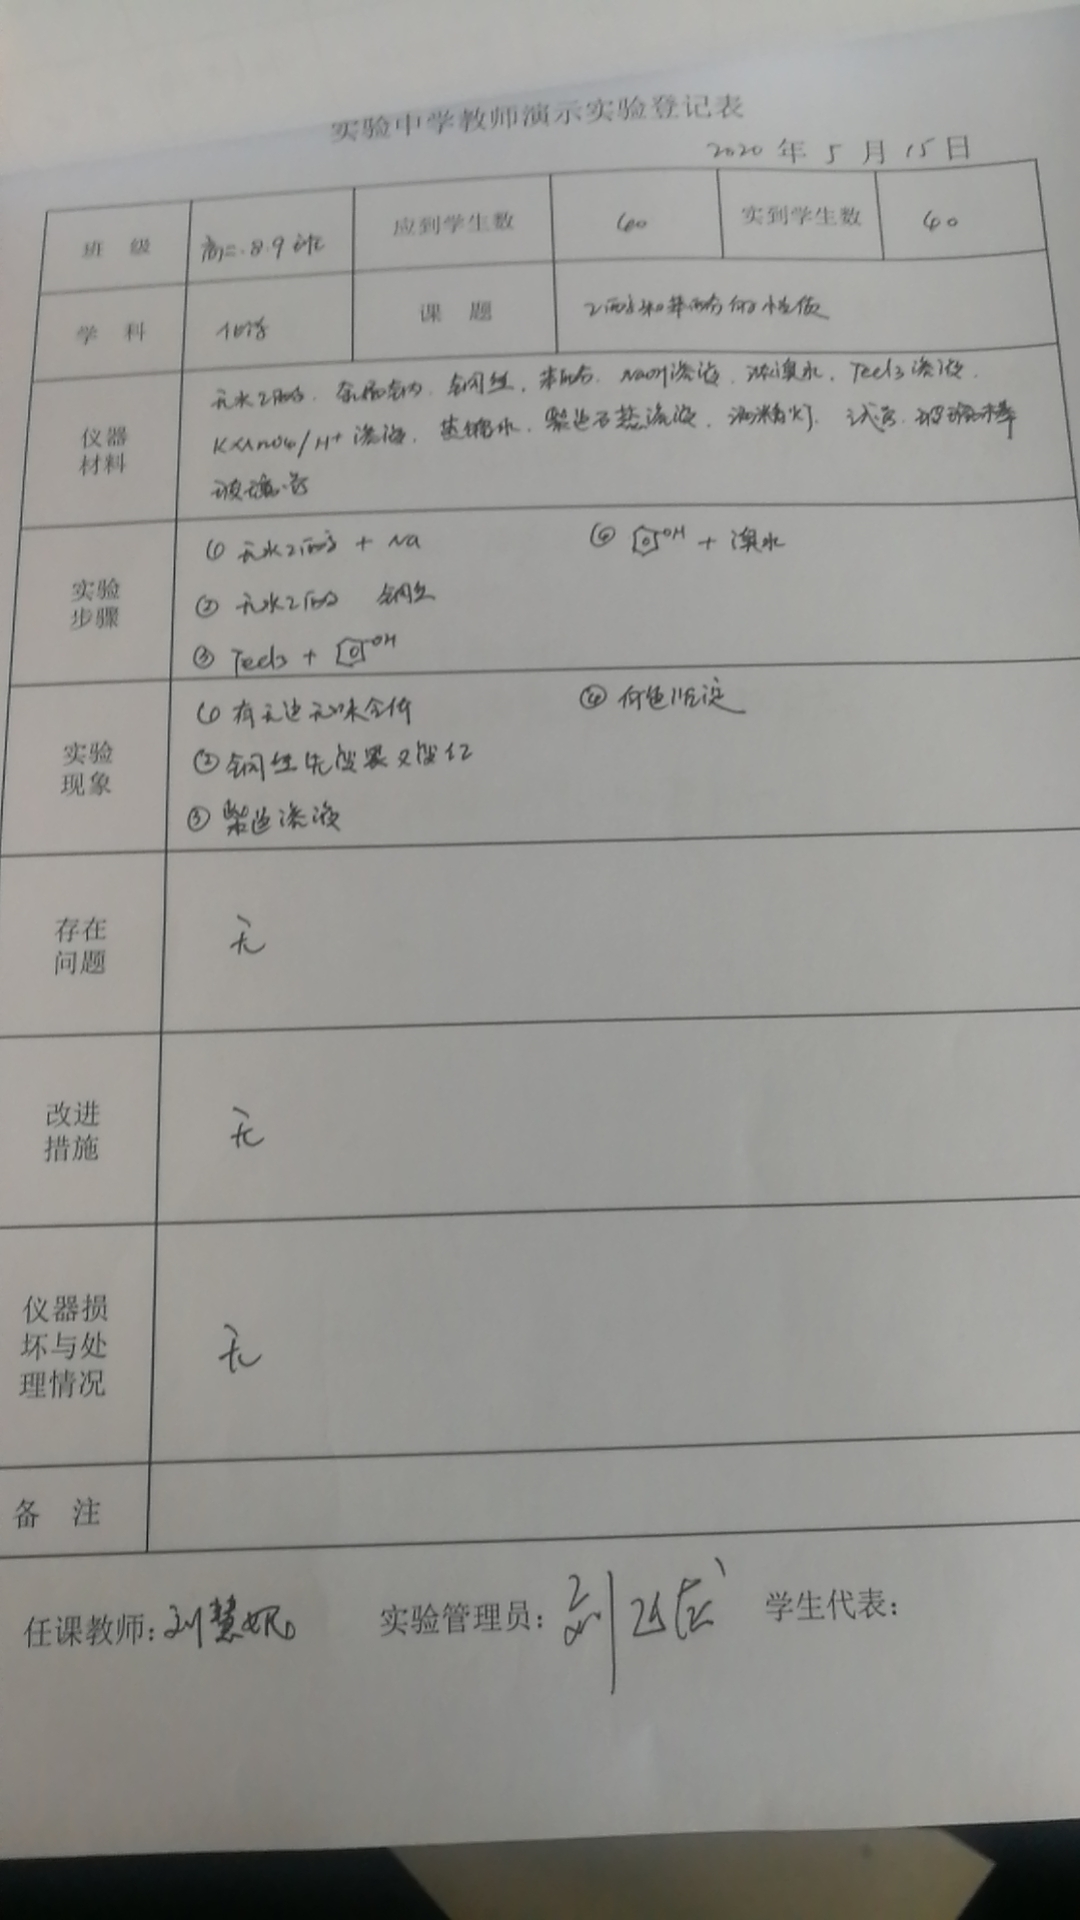 实验中学教师演示实验登记表
2020 年 5 月 15 日
班 级 高二.8.9 应到学生数 60 实到学生数 60
学 科 化学 课 题 乙醇和苯酚的性质
仪器材料 无水乙醇. 金属钠. 铜丝, 苯酚. NaOH溶液. 浓溴水. FeCl3溶液.
KMnO4/H+ 溶液. 蒸馏水. 紫色石蕊溶液. 酒精灯. 试管. 玻璃棒
玻璃
实验步骤 ① 无水乙醇 + Na ④ OH + 溴水
② 无水乙醇 铜丝
③ FeCl3 + OH
实验现象 ① 有无色无味气体 ④ 白色沉淀
② 铜丝先变黑又变红
③ 紫色溶液
存在问题 无
改进措施 无
仪器损坏与处理情况 无
备 注
任课教师: 刘慧 实验管理员: 刘 学生代表: